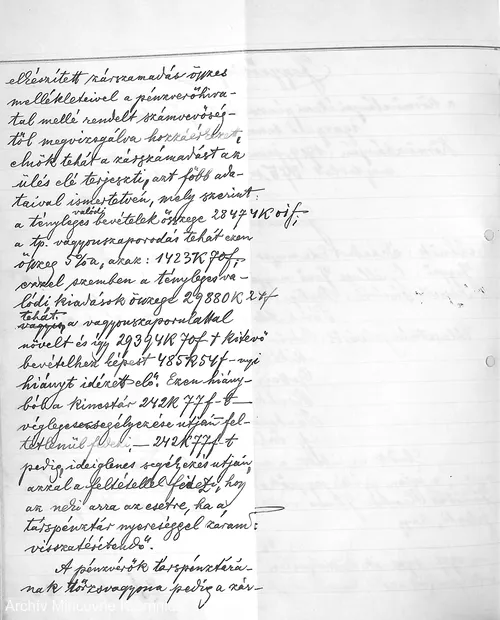 elkészített zárszamadás összes
mellékleteivel a pénzverőhiva-
tal mellé rendelt számvevőség-
től megvizsgálva hozzáérkezett,
elnök tehát a zárszámadást az
ülés elé terjeszti, azt főbb ada-
taival ismertetvén, mely szerint:
a tényleges valódi bevételek összege 28474K 01f,
a tp. vagyonszaporodás tehát ezen
összeg 5%a, azaz: 1423K 70f,
ezzel szemben a tényleges va-
lódi kiadások összege 29880K 24f
tehát a vagyonszaporulattal
növelt és így 29394K 70f t kitevő
bevételhez képest 485K 54f-nyi
hiányt idézett elő. Ezen hiány-
ból a kincstár 242K 77f-t
végleges segélyezése utján fel-
tétlenül fedezi, — 242K 77f-t
pedig ideiglenes segélyezés utján,
azzal a feltétellel fedezi, hogy
az neki arra az esetre, ha a
társpénztár nyereséggel záram:
visszatéritendő.
A pénzverők társpénztárá-
nak törzsvagyona pedig a zár-